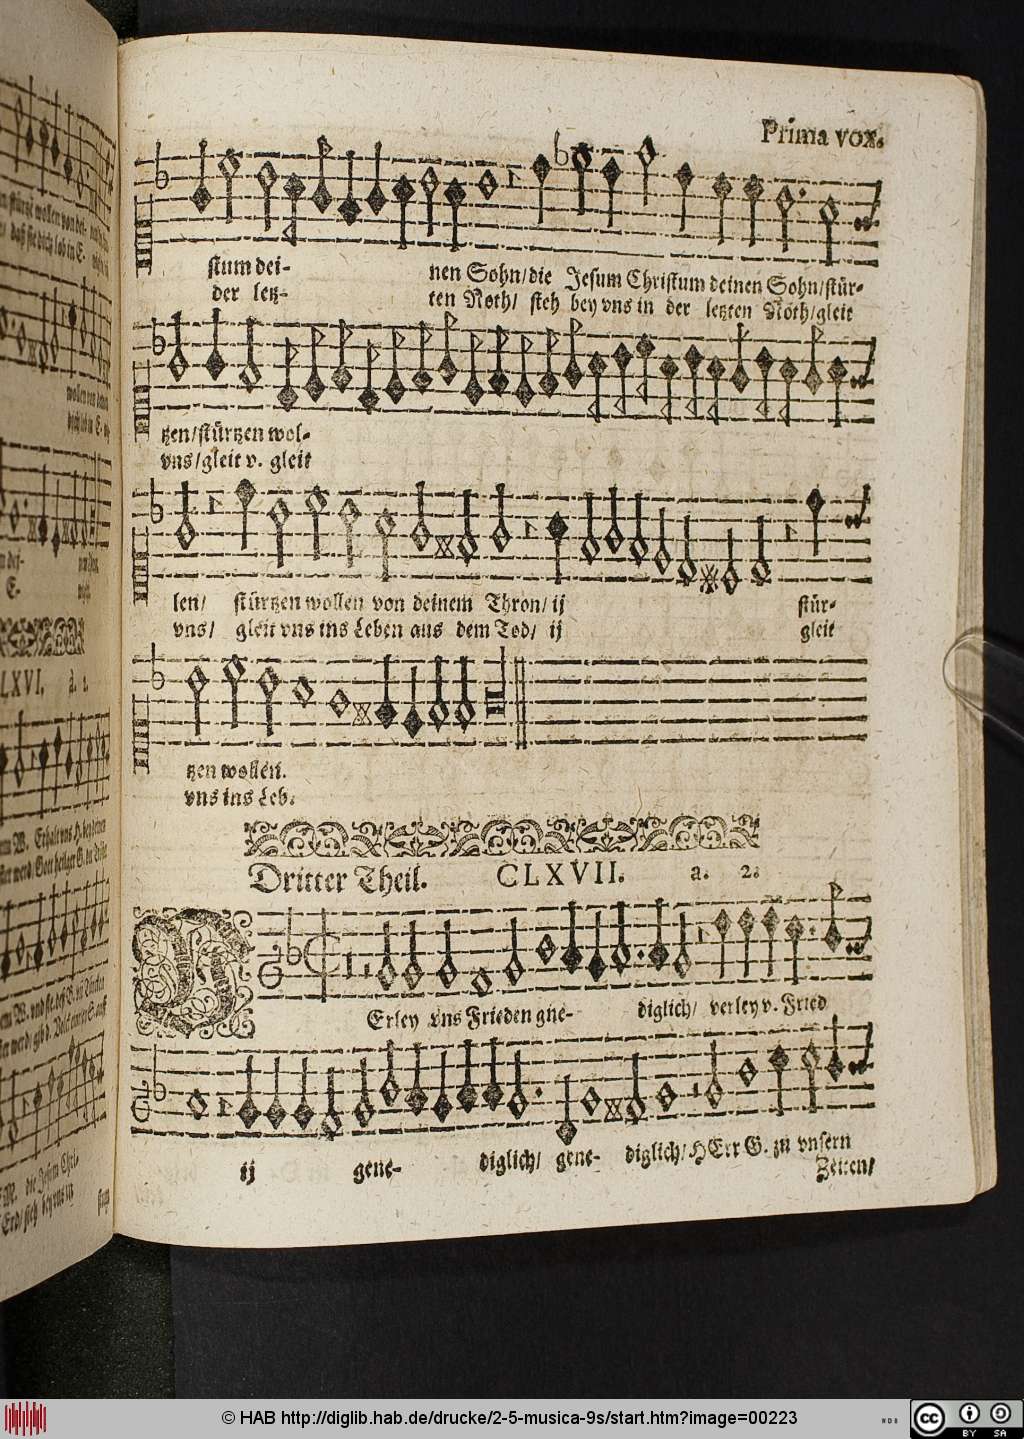 Prima vox.
stum dei- nen Sohn/die Jesum Christum deinen Sohn/stür-
der letz- ten Noth/ steh bey vns in der letzten Noth/gleit
tzen/stürtzen wol-
vns/gleit v. gleit
len/ stürtzen wollen von deinem Thron/ ij stür-
vns/ gleit vns ins Leben aus dem Tod/ ij gleit
tzen wollen.
vns ins Leb.
Dritter Theil. CLXVII. a. 2.
VErley vns Frieden gne- diglich/ verley v. Fried
ij gene- diglich/ gene- diglich/ HErr G. zu vnsern
Zeiten/
LXVI. à. 2.
© HAB http://diglib.hab.de/drucke/2-5-musica-9s/start.htm?image=00223
cc BY SA